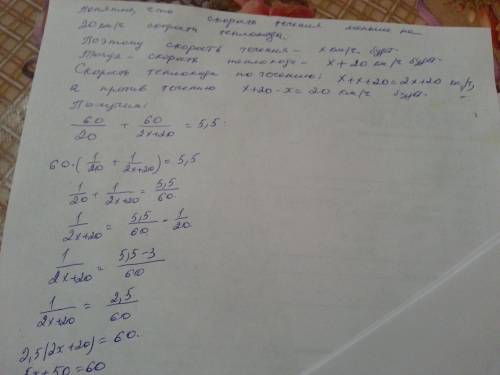 Понятно, что скорость течения меньше на
20 км/ч скорости теплохода.
Поэтому скорость течения - x км/ч будет.
Тогда - скорость теплохода - x + 20 км/ч будет.
Скорость теплохода по течению: x+x+20=2x+20 км/ч,
а против течению x+20-x=20 км/ч будет.
Получим:
60/20 + 60/2x+20 = 5,5.
60·(1/20 + 1/2x+20) = 5,5
1/20 + 1/2x+20 = 5,5/60
1/2x+20 = 5,5/60 - 1/20
1/2x+20 = 5,5-3/60
1/2x+20 = 2,5/60
2,5(2x+20)=60.
5x+50=60